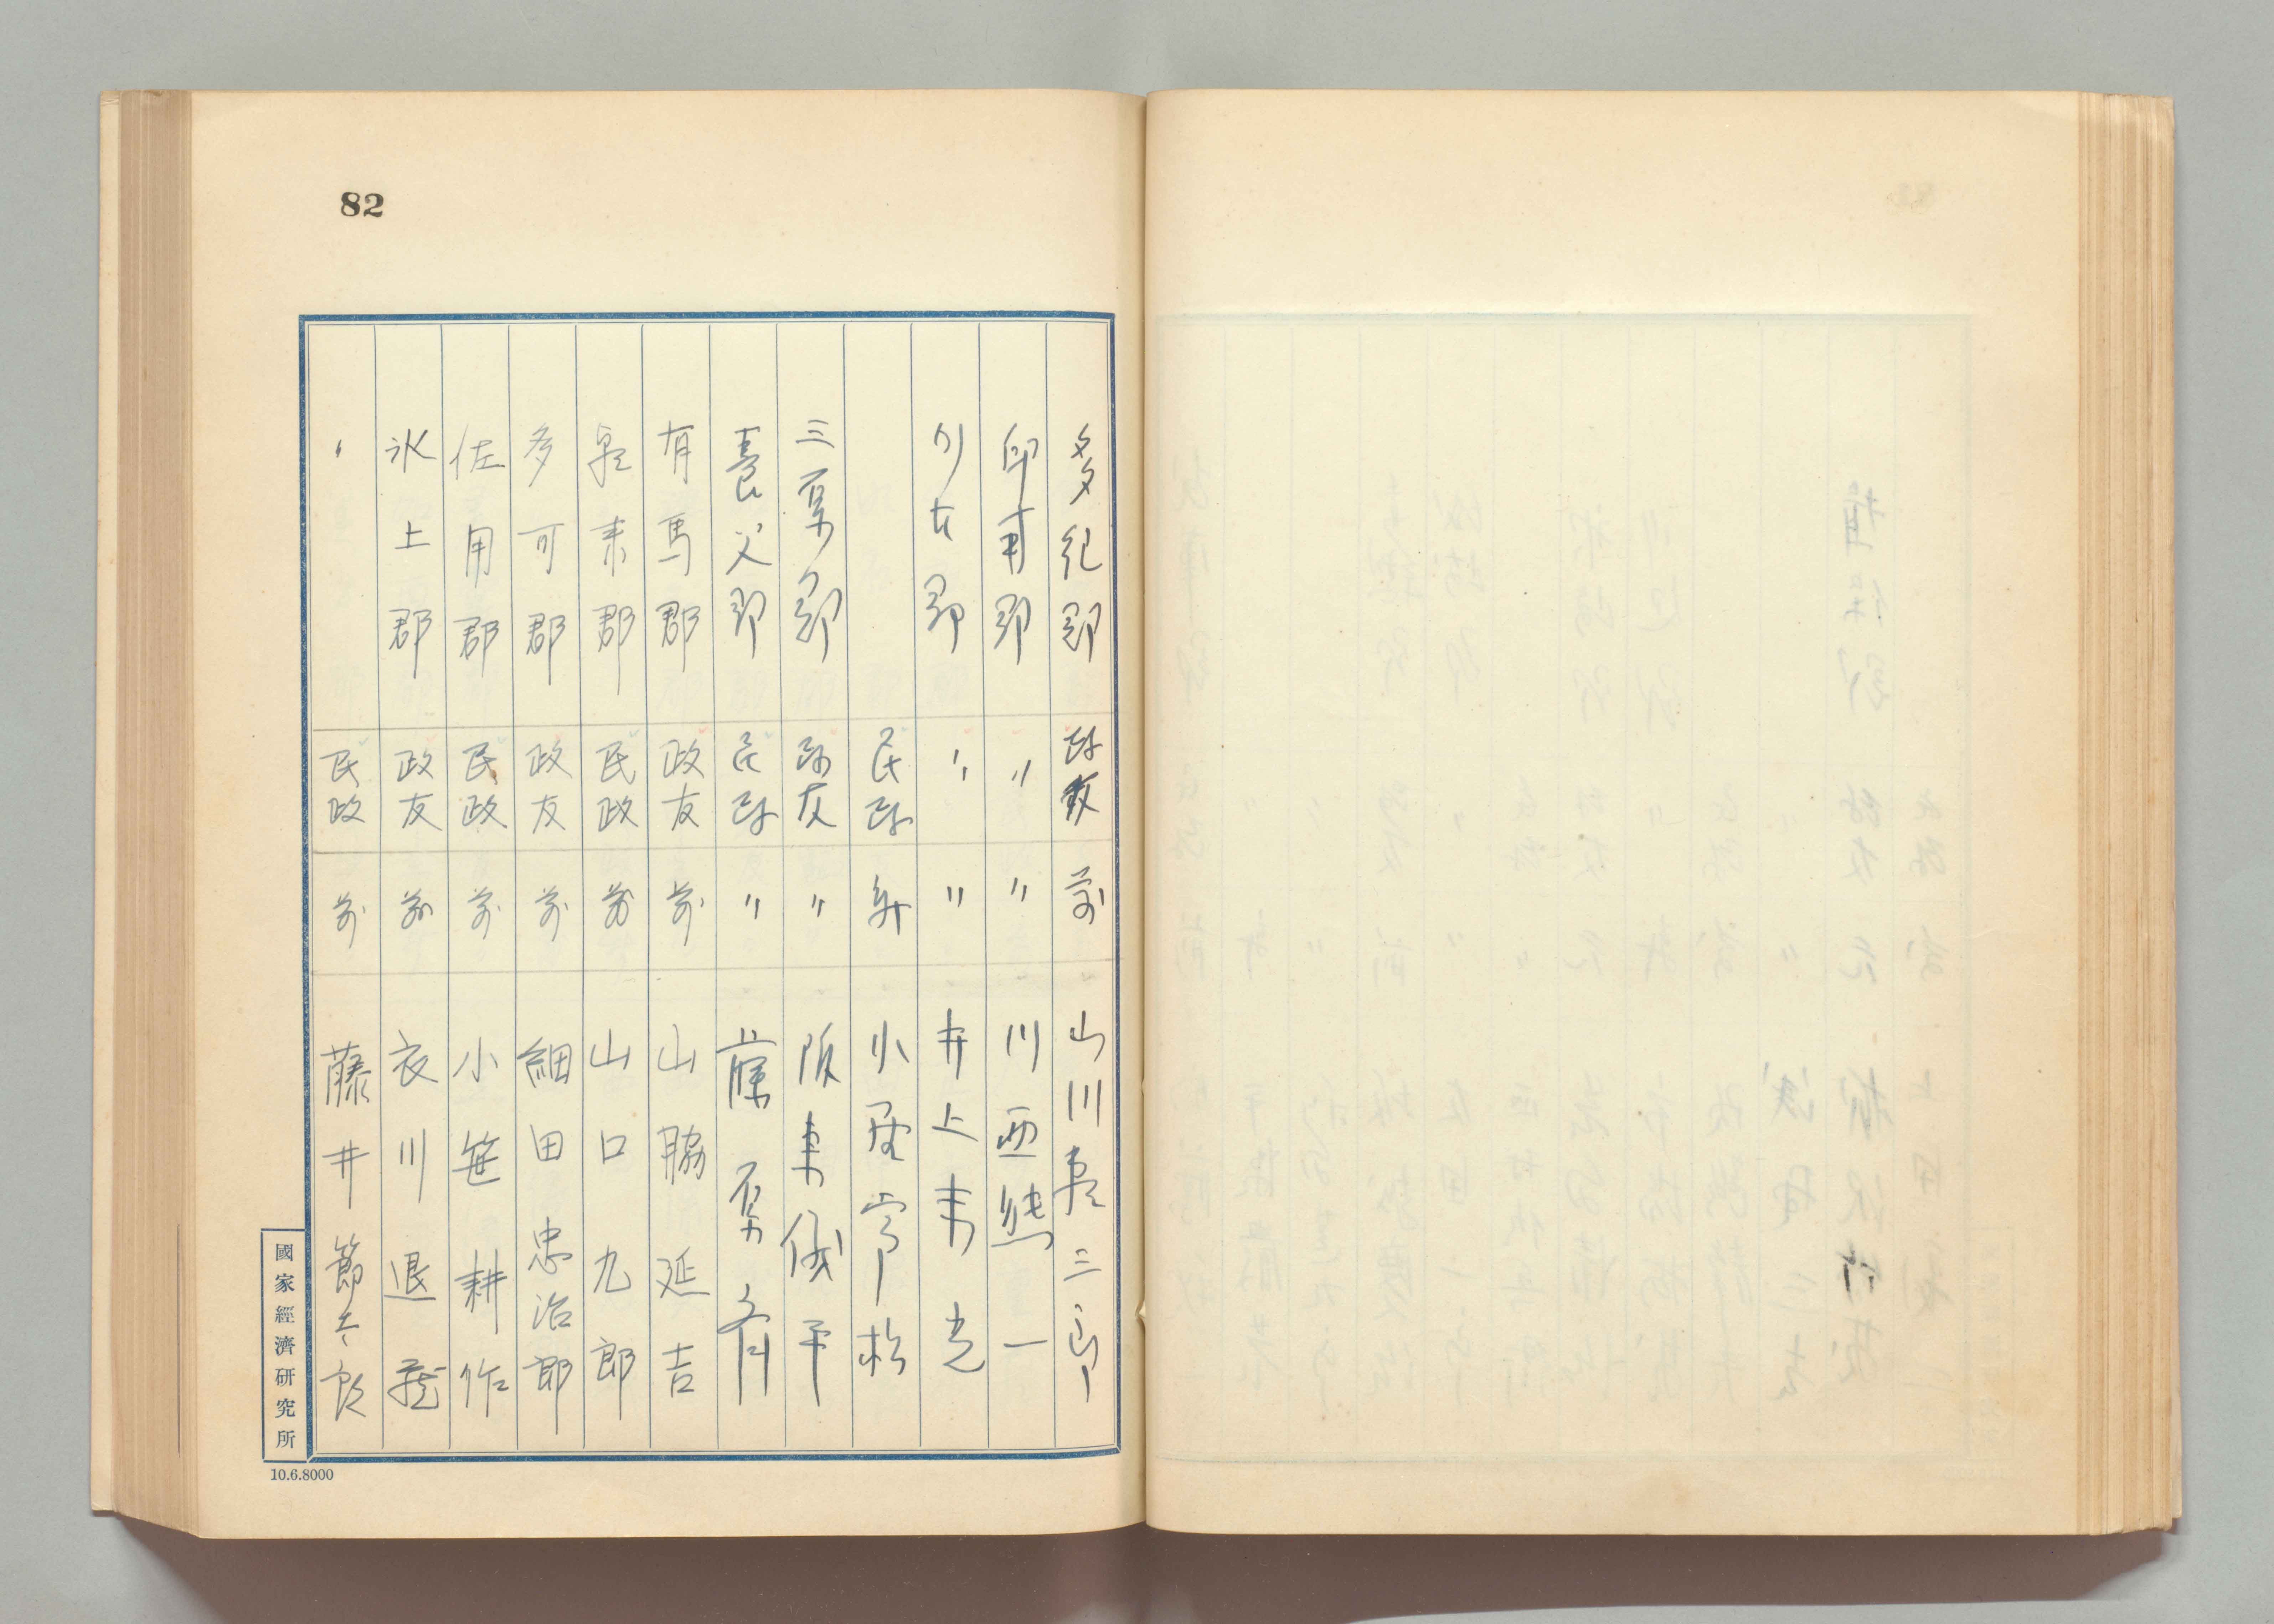 82
多紀郡 政友 前 山川 三郎
印南郡 〃 〃 川西熊一
加古郡 〃 〃 井上 光
民政 新 小尾 松
三原郡 政友 〃 阪東 平
養父郡 民政 〃 藤原
有馬郡 政友 前 山脇延吉
朝来郡 民政 前 山口九郎
多可郡 政友 前 細田忠治郎
佐用郡 民政 前 小笹耕作
氷上郡 政友 前 衣川退蔵
〃 民政 前 藤井節太郎
國家經濟研究所
10.6.8000